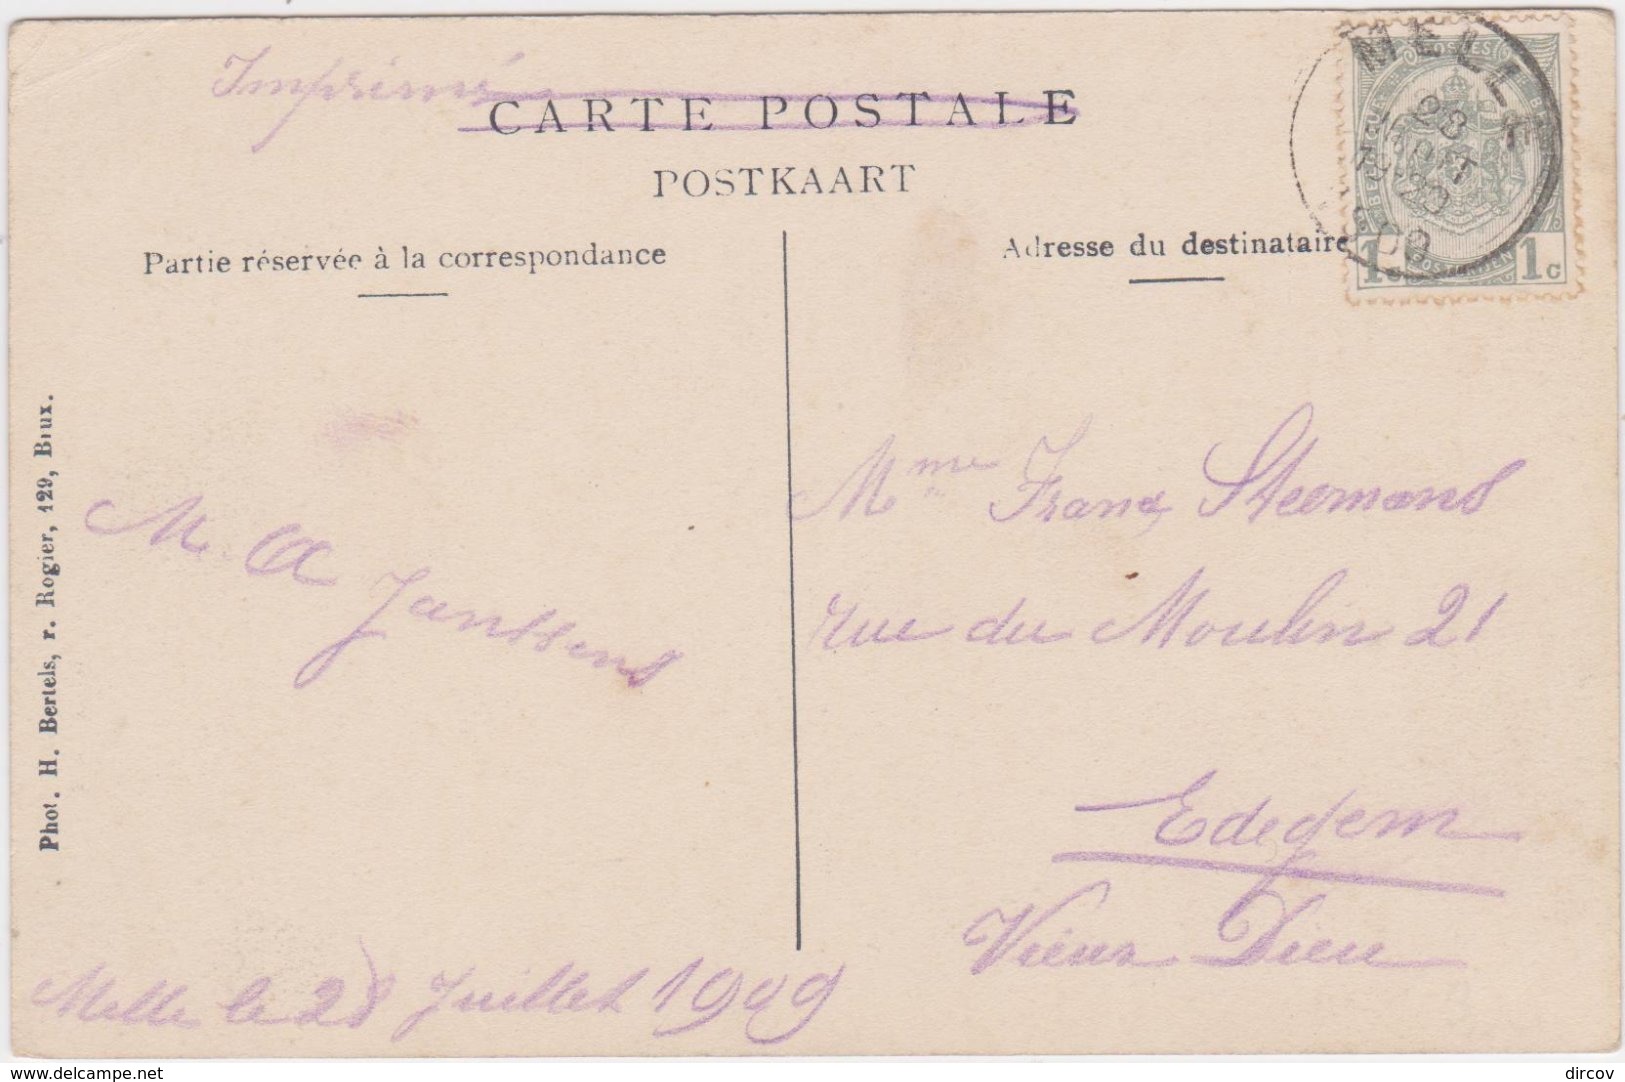 Imprimé
CARTE POSTALE
POSTKAART
Partie réservée à la correspondance
Adresse du destinataire
MELLE
1909
POSTES
BELGIQUE
POSTERIJEN
1c
1c
Phot. H. Bertels, r. Rogier, 129, Brux.
M. A
Janssens
Melle le 28 Juillet 1909
Mme Franz Steemans
rue du Moulin 21
Edegem
Vieux Dieu
www.delcampe.net
dircov